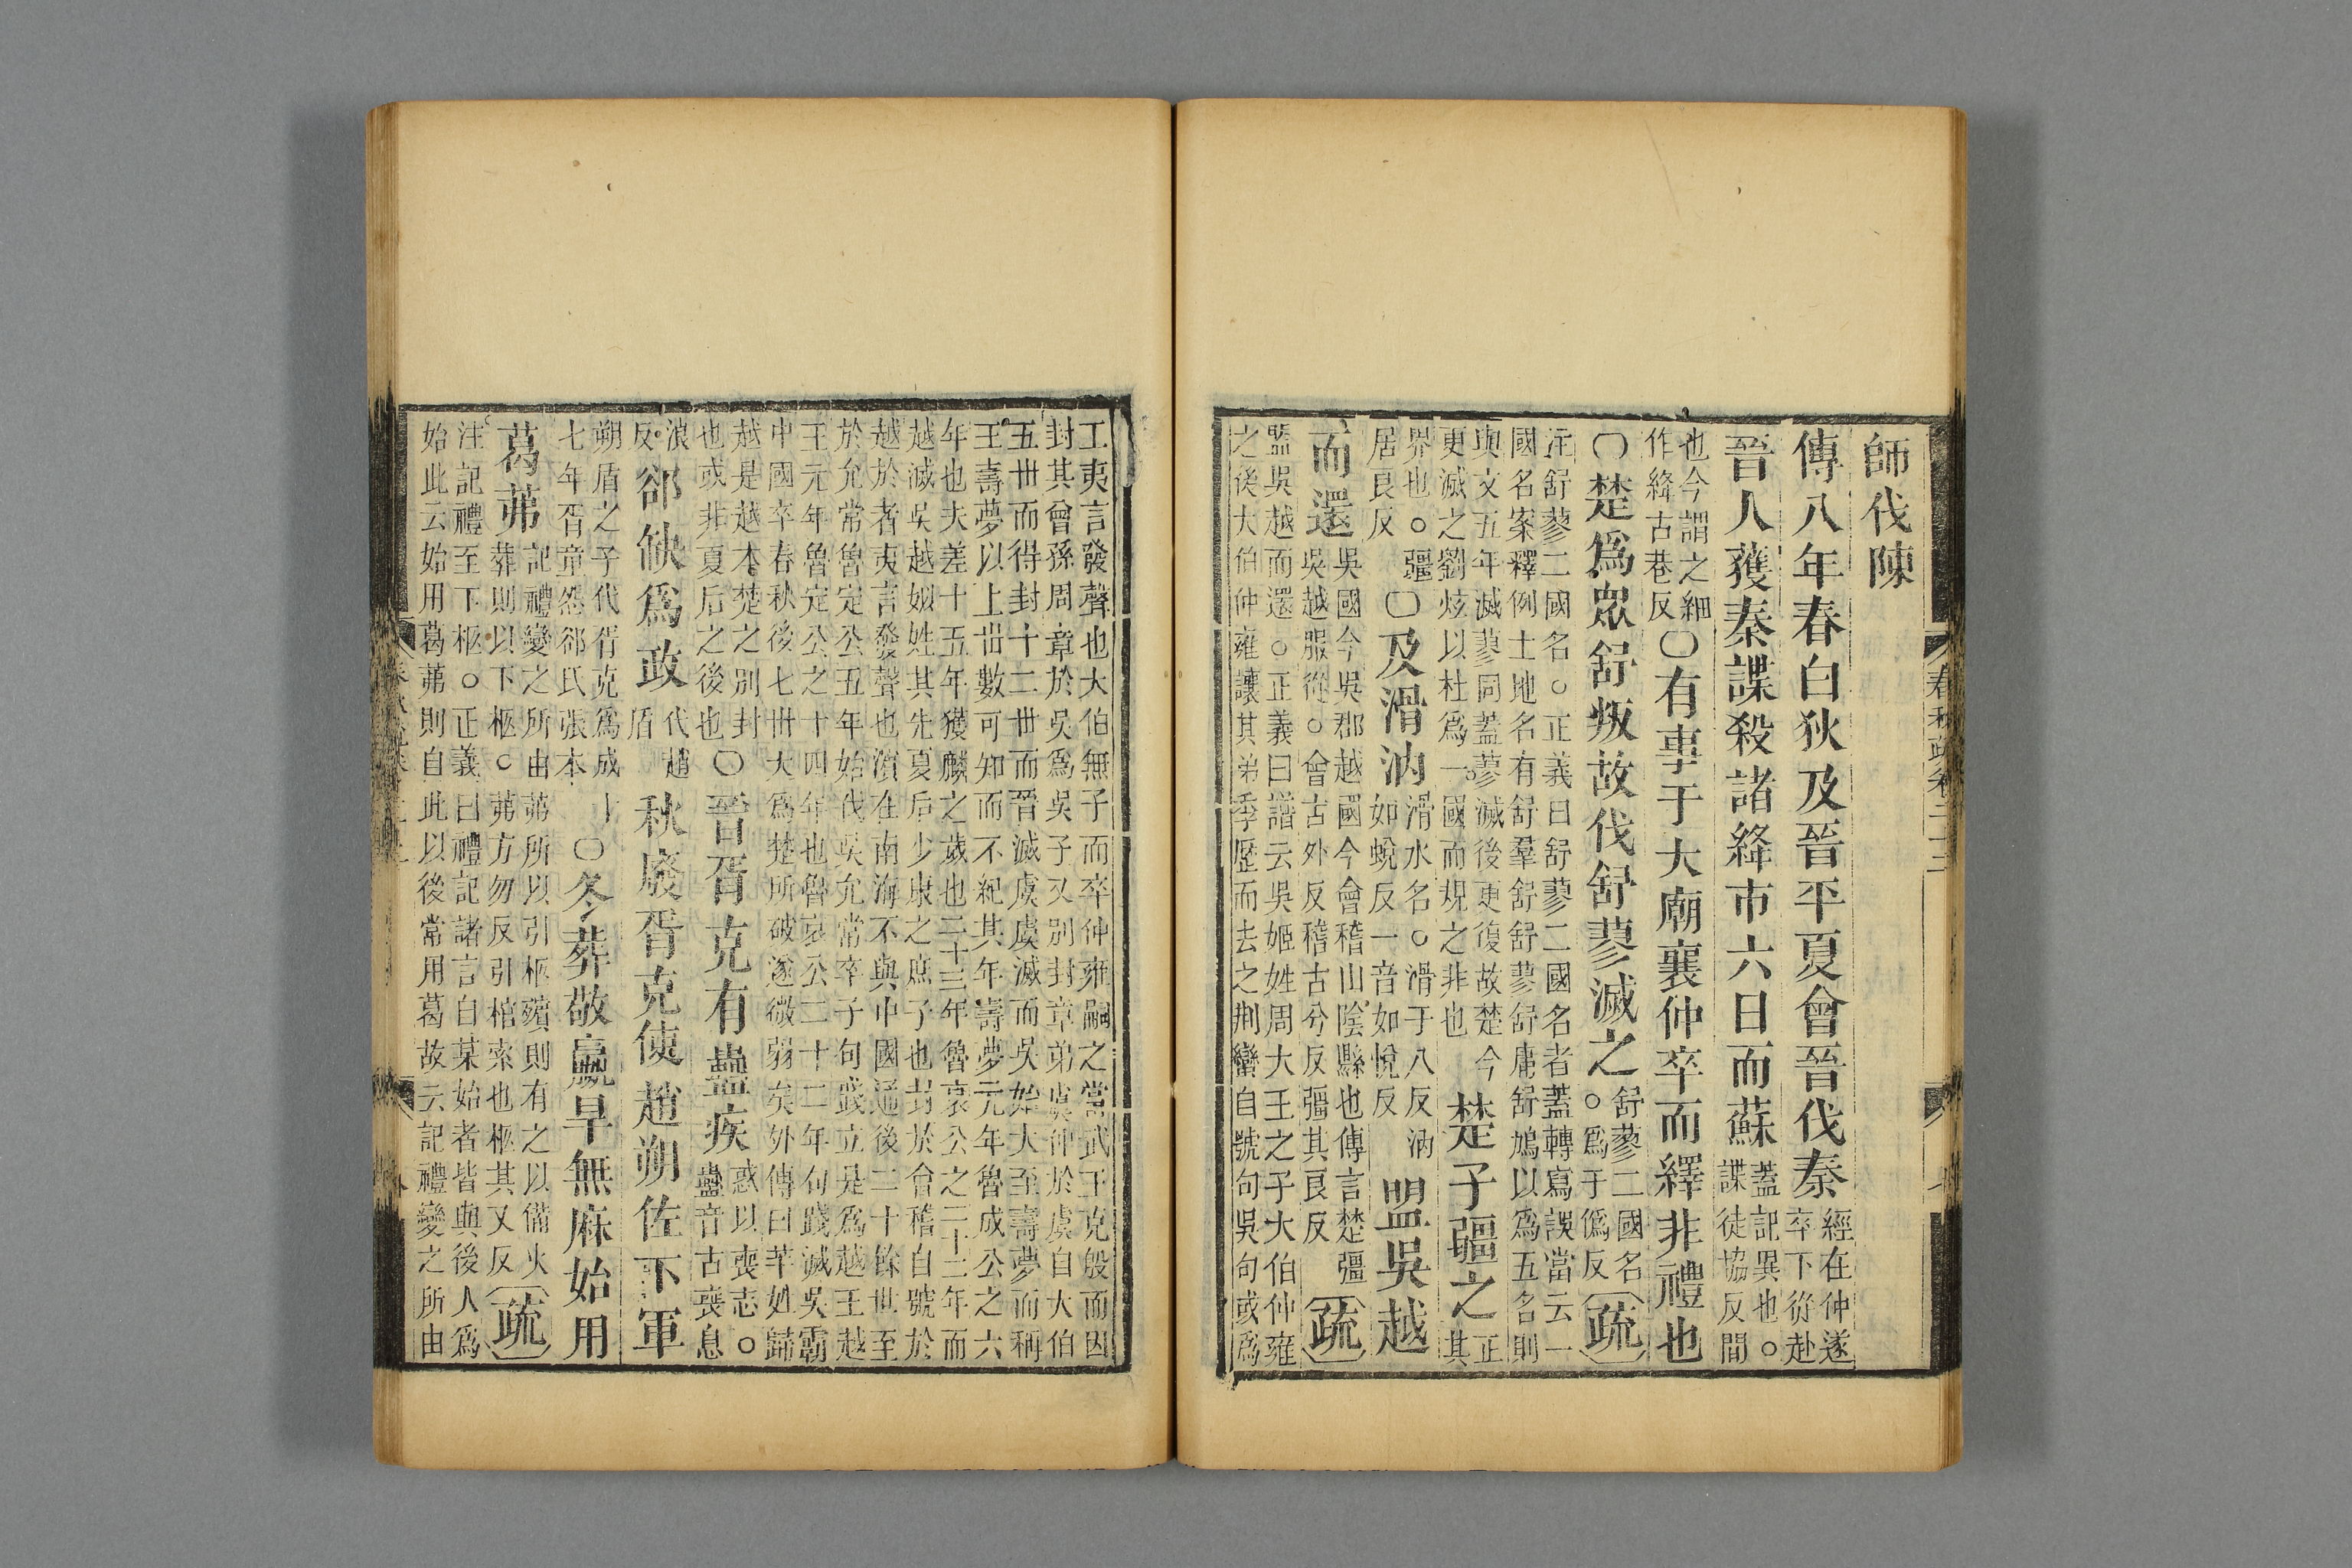 師伐陳
傳八年春白狄及晉平夏會晉伐秦經在仲遂
卒下從赴
晉人獲秦諜殺諸絳市六日而蘇蓋記異也○
諜徒協反間
也今謂之細
作絳古巷反○有事于大廟襄仲卒而繹非禮也
○楚爲眾舒叛故伐舒蓼滅之舒蓼二國名
○爲于僞反疏
注舒蓼二國名○正義曰舒蓼二國名者蓋轉寫誤當云一
國名案釋例土地名有舒羣舒舒蓼舒庸舒鳩以爲五名則
與文五年滅蓼同蓋蓼滅後更復故楚今
更滅之劉炫以杜爲一國而規之非也楚子疆之正
其
界也○疆
居良反○及滑汭滑水名○滑于八反汭
如蛻反一音如悅反盟吳越
而還吳國今吳郡越國今會稽山陰縣也傳言楚彊
吳越服從○會古外反稽古兮反彊其良反疏
盟吳越而還○正義曰譜云吳姬姓周大王之子大伯仲雍
之後大伯仲雍讓其弟季歷而去之荆蠻自號句吳句或爲
春秋疏卷二十二
工夷言發聲也大伯無子而卒仲雍嗣之當武王克殷而因
封其曾孫周章於吳爲吳子又別封章弟虞仲於虞自大伯
五世而得封十二世而晉滅虞虞滅而吳始大至壽夢而稱
王壽夢以上世數可知而不紀其年壽夢元年魯成公之六
年也夫差十五年獲麟之歲也二十三年魯哀公之二十二年而
越滅吳越姒姓其先夏后少康之庶子也封於會稽自號於
越於者夷言發聲也濱在南海不與中國通後二十餘世至
於允常魯定公五年始伐吳允常卒子句踐立是爲越王越
王元年魯定公之十四年也魯哀公二十二年句踐滅吳霸
中國卒春秋後七世大爲楚所破遂微弱矣外傳曰芊姓歸
越是越本楚之別封
也或非夏后之後也○晉胥克有蠱疾惑以喪志○
蠱音古喪息
浪
反郤缺爲政代趙
盾秋廢胥克使趙朔佐下軍
朔盾之子代胥克爲成十
七年胥童怨郤氏張本○冬葬敬嬴旱無麻始用
葛茀記禮變之所由茀所以引柩殯則有之以備火
葬則以下柩○茀方勿反引棺索也柩其又反疏
注記禮至下柩○正義曰禮記諸言自某始者皆與後人爲
始此云始用葛茀則自此以後常用葛故云記禮變之所由